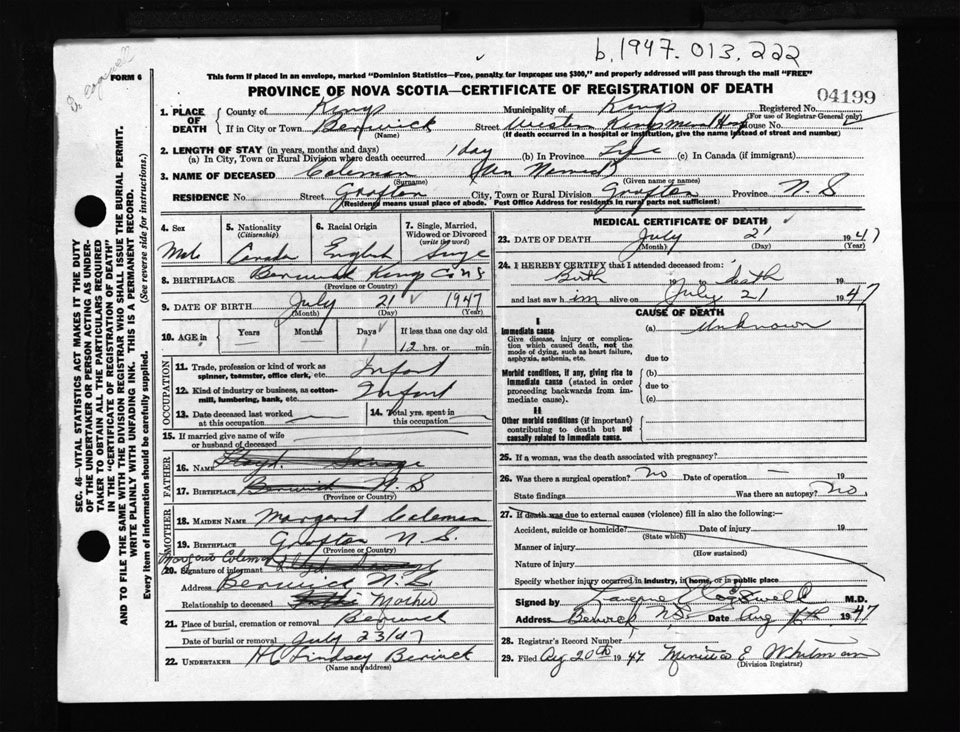 b. 1947. 013. 222
Dr Cogswell
FORM 6
This form if placed in an envelope, marked "Dominion Statistics—Free, penalty for improper use $300," and properly addressed will pass through the mail "FREE"
PROVINCE OF NOVA SCOTIA—CERTIFICATE OF REGISTRATION OF DEATH
04199
1. PLACE OF DEATH County of Kings Municipality of Kings Registered No.
(For use of Registrar General only)
If in City or Town Berwick Street Western Kings Mem Hosp House No.
(Name) (If death occurred in a hospital or institution, give the name instead of street and number)
2. LENGTH OF STAY (in years, months and days)
(a) In City, Town or Rural Division where death occurred 1 day (b) In Province Life (c) In Canada (if immigrant)
3. NAME OF DECEASED Coleman (Un Named)
(Surname) (Given name or names)
RESIDENCE No. Street Grafton City, Town or Rural Division Grafton Province N. S
(Residence means usual place of abode. Post Office Address for residents in rural parts not sufficient)
4. Sex 5. Nationality (Citizenship) 6. Racial Origin 7. Single, Married, Widowed or Divorced (write the word)
Male Canada English Single
8. BIRTHPLACE Berwick Kings Co NS
(Province or Country)
9. DATE OF BIRTH July 21 1947
(Month) (Day) (Year)
10. AGE in Years Months Days If less than one day old
12 hrs. or min.
OCCUPATION
11. Trade, profession or kind of work as spinner, teamster, office clerk, etc. Infant
12. Kind of industry or business, as cotton-mill, lumbering, bank, etc. Infant
13. Date deceased last worked at this occupation 14. Total yrs. spent in this occupation
15. If married give name of wife or husband of deceased
FATHER
16. NAME Lloyd Savage
17. BIRTHPLACE Berwick N. S
(Province or Country)
MOTHER
18. MAIDEN NAME Margaret Coleman
19. BIRTHPLACE Grafton N. S.
(Province or Country)
Margaret Coleman
20. Signature of informant Lloyd Savage
Address Berwick N. S.
Relationship to deceased Father Mother
21. Place of burial, cremation or removal Berwick
Date of burial or removal July 23/47
22. UNDERTAKER H C Lindsay Berwick
(Name and address)
MEDICAL CERTIFICATE OF DEATH
23. DATE OF DEATH July 21 1947
(Month) (Day) (Year)
24. I HEREBY CERTIFY that I attended deceased from:
Birth 19 to death 19
and last saw him alive on July 21 1947
CAUSE OF DEATH
I
Immediate cause (a) Unknown
Give disease, injury or complication which caused death, not the mode of dying, such as heart failure, asphyxia, asthenia, etc. due to
Morbid conditions, if any, giving rise to immediate cause (stated in order proceeding backwards from immediate cause). (b)
due to
(c)
II
Other morbid conditions (if important) contributing to death but not causally related to immediate cause.
25. If a woman, was the death associated with pregnancy?
26. Was there a surgical operation? no Date of operation — 19
State findings Was there an autopsy? no
27. If death was due to external causes (violence) fill in also the following:—
Accident, suicide or homicide? Date of injury 19
(State which)
Manner of injury
(How sustained)
Nature of injury
Specify whether injury occurred in industry, in home, or in public place
Signed by Cogswell M.D.
Address Berwick N.S. Date Aug 1947
28. Registrar's Record Number
29. Filed Aug 20th 1947 E. Whitman
(Division Registrar)
SEC. 46—VITAL STATISTICS ACT MAKES IT THE DUTY
OF THE UNDERTAKER OR PERSON ACTING AS UNDER-
TAKER TO OBTAIN ALL THE PARTICULARS REQUIRED
IN THE "CERTIFICATE OF REGISTRATION OF DEATH"
AND TO FILE THE SAME WITH THE DIVISION REGISTRAR WHO SHALL ISSUE THE BURIAL PERMIT.
WRITE PLAINLY WITH UNFADING INK. THIS IS A PERMANENT RECORD.
Every item of information should be carefully supplied. (See reverse side for instructions.)